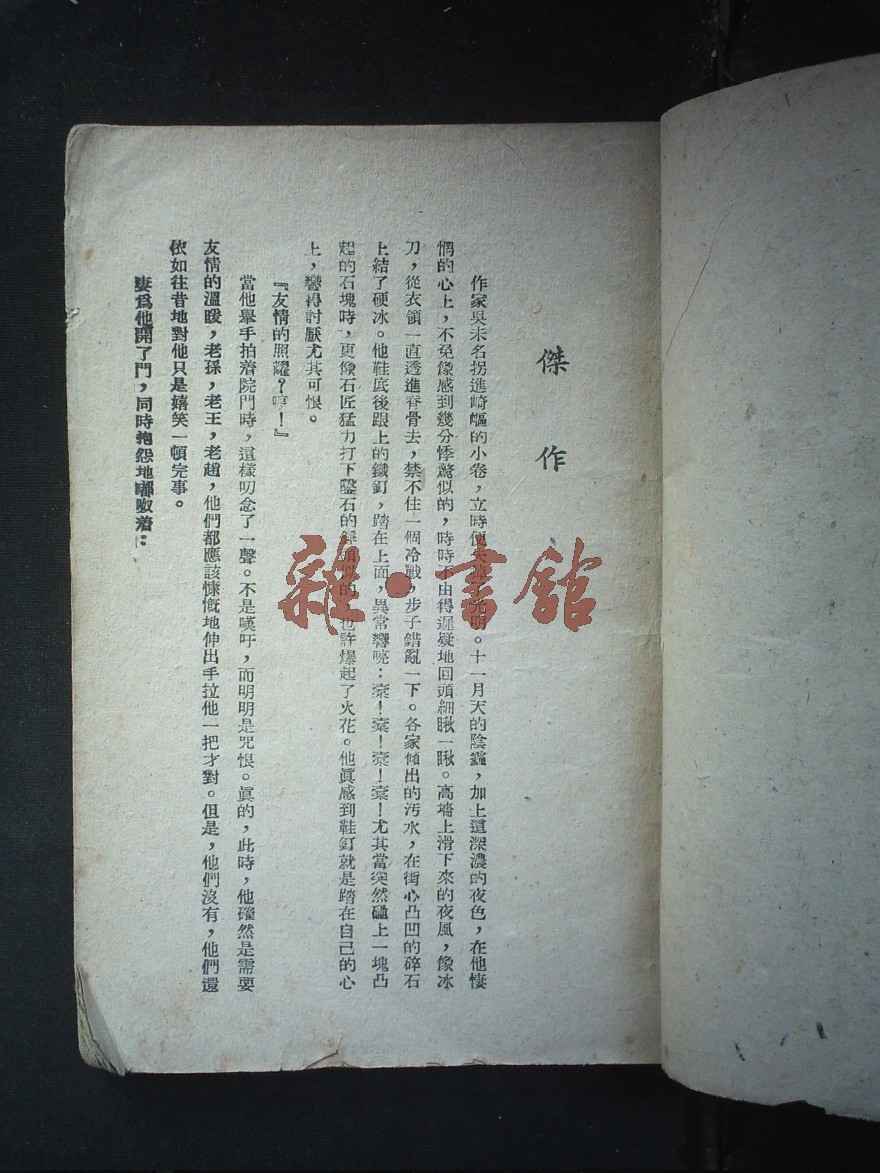 傑作
作家吳未名拐進崎嶇的小巷，立時便失掉光明。十一月天的陰霾，加上這深濃的夜色，在他悽
惘的心上，不免像感到幾分悸驚似的，時時不由得遲疑地回頭細瞅一瞅。高墻上滑下來的夜風，像冰
刀，從衣領一直透進脊骨去，禁不住一個冷戰，步子錯亂一下。各家傾出的汚水，在街心凸凹的碎石
上結了硬冰。他鞋底後跟上的鐵釘，踏在上面，異常響喨：槖！槖！槖！槖！尤其當突然碰上一塊凸
起的石塊時，更像石匠猛力打下鑿石的錘頭似的，也許爆起了火花。他眞感到鞋釘就是踏在自己的心
上，響得討厭尤其可恨。
『友情的照耀？哼！』
當他舉手拍着院門時，這樣叨念了一聲。不是嘆吁，而明明是咒恨。眞的，此時，他確然是需要
友情的溫暖，老孫，老王，老趙，他們都應該慷慨地伸出手拉他一把才對。但是，他們沒有，他們還
依如往昔地對他只是嬉笑一頓完事。
妻爲他開了門，同時抱怨地嘟呶着：
雜·書館